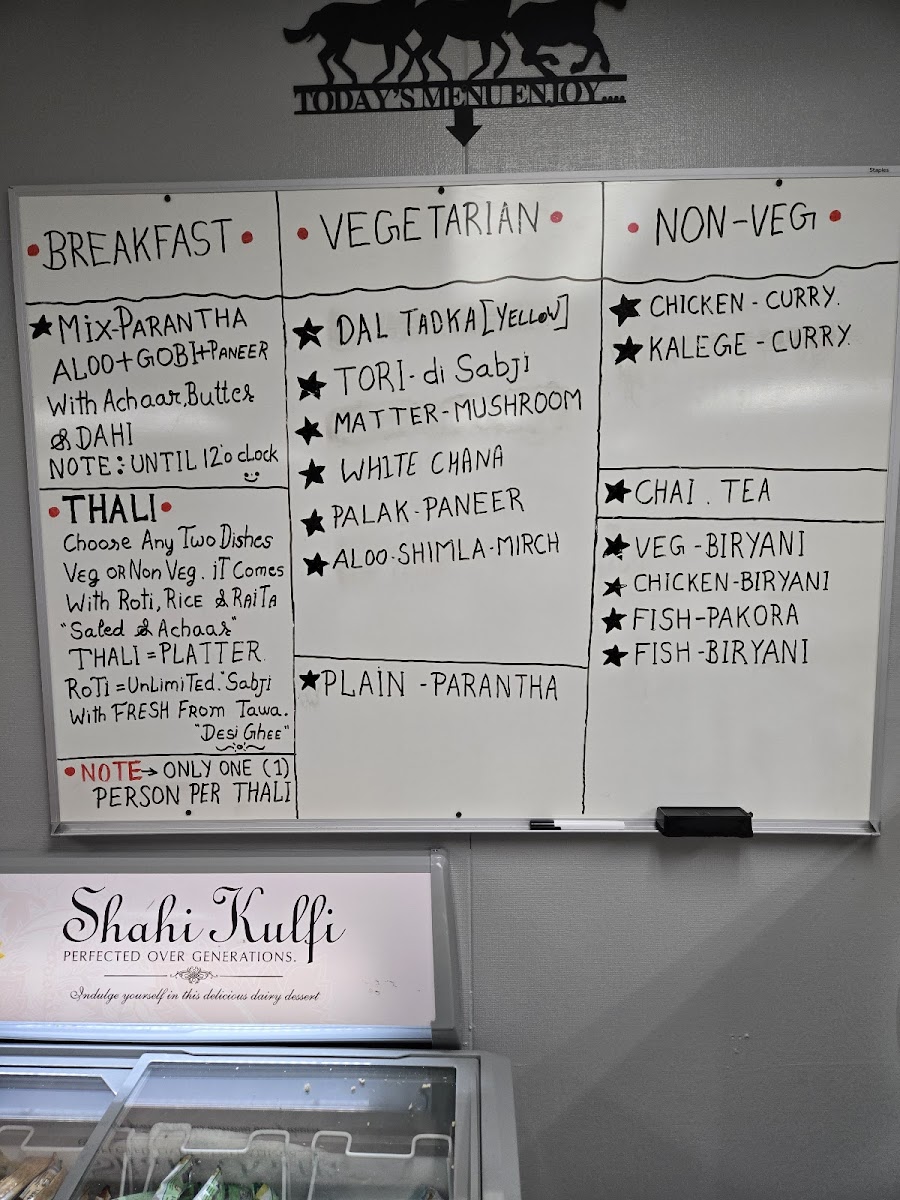 TODAY'S MENU ENJOY....
Staples
BREAKFAST
MIX-PARANTHA
ALOO+GOBI+PANEER
With Achaar,Butter
& DAHI
NOTE: UNTIL 12'o cLock
THALI
Choose Any Two Dishes
Veg OR Non Veg. iT Comes
With Roti, RICE & RAiTA
"Saled & Achaar"
THALI = PLATTER.
RoTi = UnLimiTed. Sabji
With FRESH From Tawa.
"Desi Ghee"
NOTE → ONLY ONE (1)
PERSON PER THALI
VEGETARIAN
DAL TADKA [YELLOW]
TORI- di Sabji
MATTER-MUSHROOM
WHITE CHANA
PALAK-PANEER
ALOO-SHIMLA-MIRCH
PLAIN - PARANTHA
NON-VEG
CHICKEN - CURRY.
KALEGE - CURRY.
CHAI . TEA
VEG - BIRYANI
CHICKEN-BIRYANI
FISH-PAKORA
FISH-BIRYANI
Shahi Kulfi
PERFECTED OVER GENERATIONS.
Indulge yourself in this delicious dairy dessert